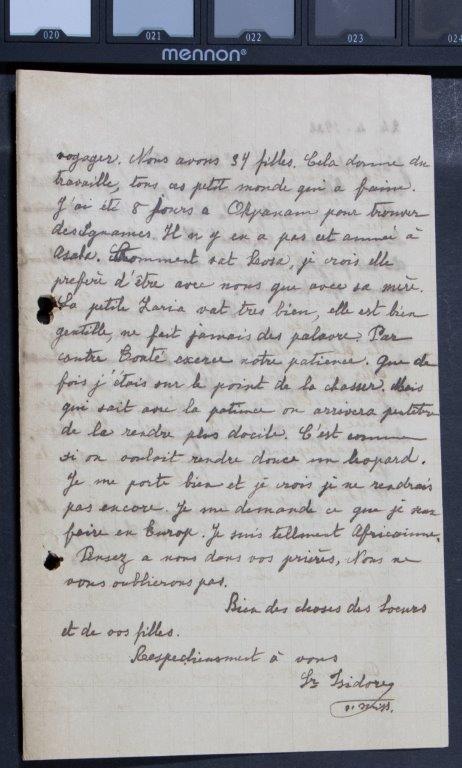 020 021 022 023 024
mennon®
voyager. Nous avons 34 filles. Cela donne du
travaille, tous ces petit monde qui a faim.
J'ai été 8 jours a Okpanam pour trouver
des Ignames. Il n'y en a pas cet année à
Asaba. Comment vat Rosa, je crois elle
prefère d'être avec nous que avec sa mère.
La petite Zaria vat tres bien, elle est bien
gentille, ne fait jamais des palavre. Par
contre exerce notre patience. Que de
fois j'étais sur le point de la chasser. Mais
qui sait avec la patience on arrivera peutetre
de la rendre plus docile. C'est comme
si on voulait rendre douce un leopard.
Je me porte bien et je crois je ne rendrais
pas encore. Je me demande ce que je
faire en Europ. Je suis tellment Africainne.
Pensez a nous dans vos prières, Nous ne
vous oublierons pas.
Bien des choses des Soeurs
et de vos filles.
Respectieusement à vous
Sr Isidore